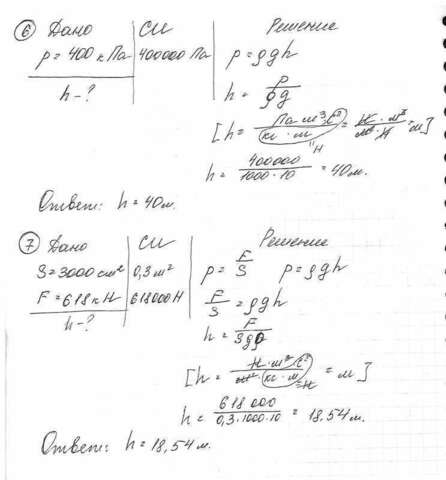 ⑥ Дано СИ Решение
p = 400 кПа 400000 Па p = ρgh
h - ? h = p/ρg
[h = Па м³ с²/кг · м = Н · м³/м² · Н = м]
"Н
h = 400000/1000 · 10 = 40 м.
Ответ: h = 40 м.
⑦ Дано СИ Решение
S = 3000 см² 0,3 м² p = F/S p = ρgh
F = 618 кН 618000 Н F/S = ρgh
h - ? h = F/Sgρ
[h = Н · м³ с²/м² кг · м = м]
=Н
h = 618 000/0,3 · 1000 · 10 = 18,54 м.
Ответ: h = 18,54 м.